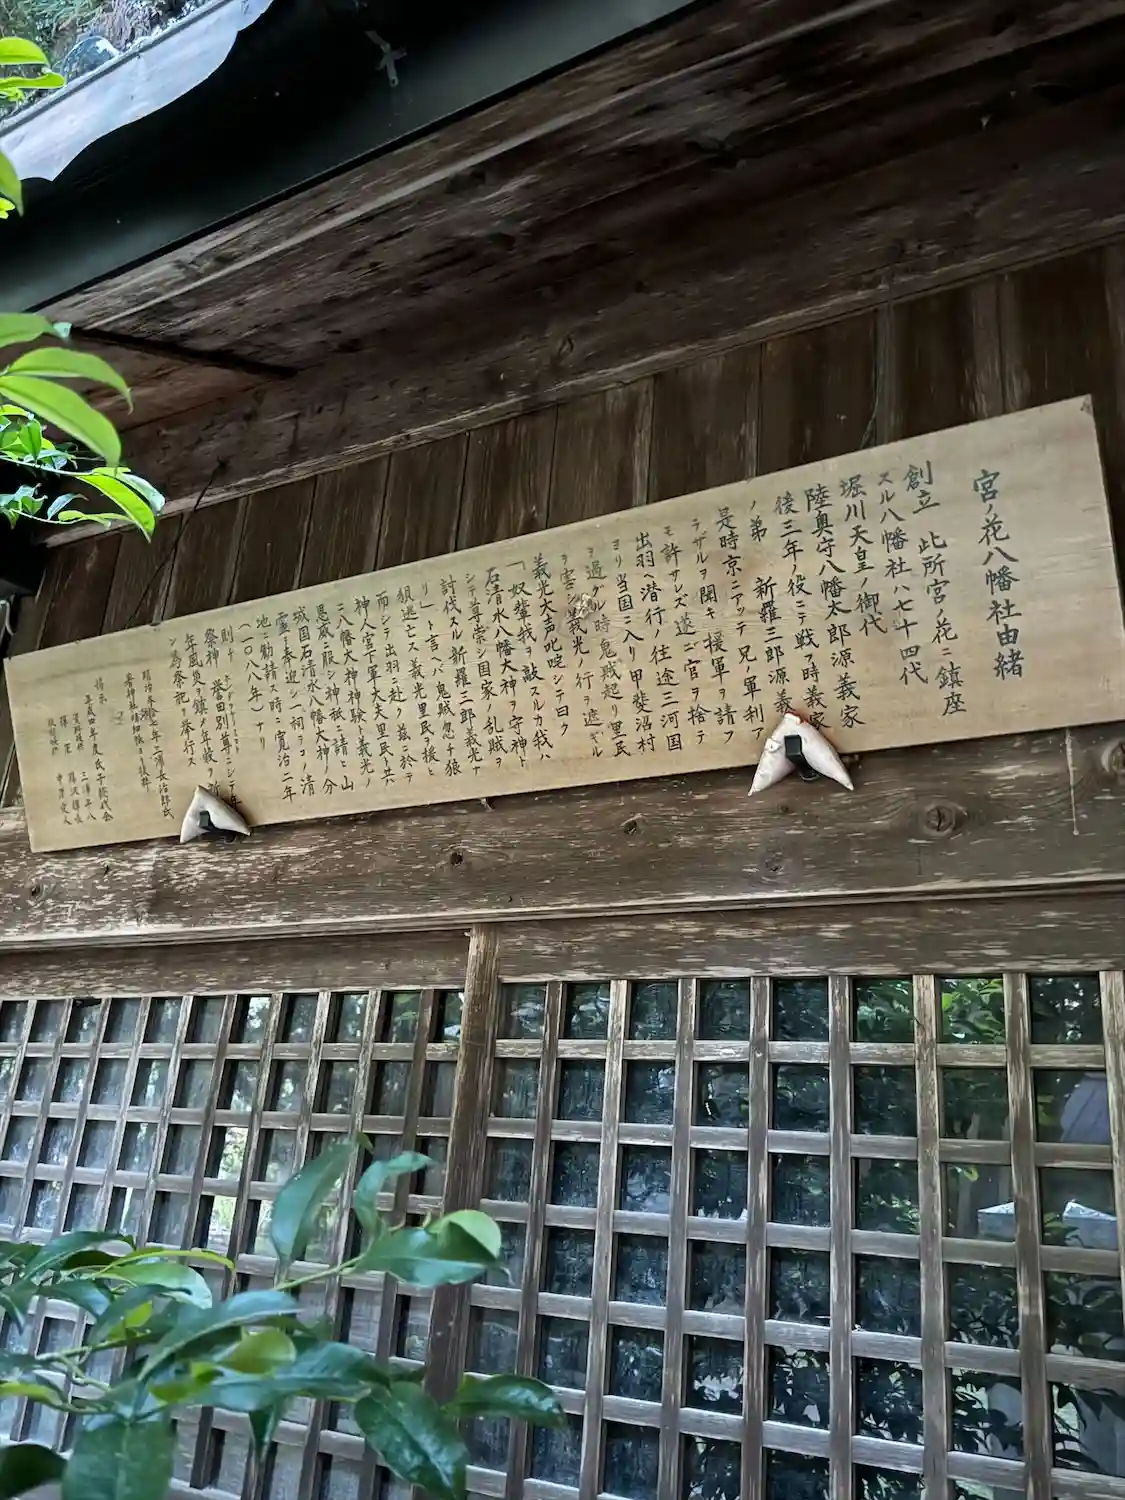 宮ノ花八幡社由緒
創立 此所宮ノ花ニ鎮座
スル八幡社ハ七十四代
堀川天皇ノ御代
陸奥守八幡太郎源義家
後三年ノ役ニテ戦フ時義家
ノ弟 新羅三郎源義
是時京ニアッテ兄ノ軍利ア
ラザルヲ聞キ援軍ヲ請フ
モ許サレズ遂ニ官ヲ捨テ
出羽ヘ潜行ノ往途三河国
ヨリ当国ニ入リ甲斐沼村
ヲ過グル時鬼賊起リ里民
ヲ害シ義光ノ行ヲ遮ギル
義光大声叱咤シテ曰ク
「奴輩我ヲ敵スルカ我ハ
石清水八幡大神ヲ守神ト
シテ尊崇シ国家ノ乱賊ヲ
討伐スル新羅三郎義光ナ
リ」ト言ヘバ鬼賊忽チ狼
狽逃亡ス義光里民ヲ援ヒ
而シテ出羽ニ赴ク茲ニ於テ
神人宮下軍大夫里民ト共
ニ八幡大神神験ト義光ノ
恩威ニ服シ神祇ニ請ヒ山
城国石清水八幡大神ノ分
霊ヲ奉迎シ一祠ヲコノ清
地ニ勧請ス時ニ寛治二年
(一〇八八年)ナリ
則チ 誉田別尊ニシテ年
祭神
年風災ヲ鎮メ年穀ヲ祈
ン為祭祀ヲ挙行ス
三浦長治郎氏
平成四年度氏子総代会